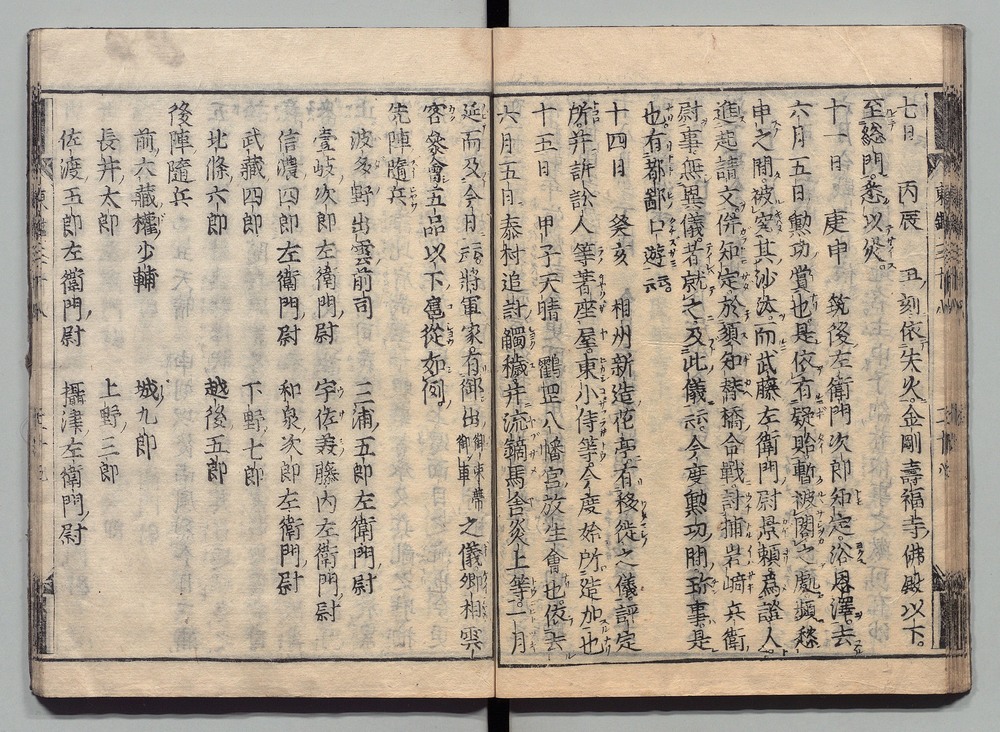 七日 丙辰 丑刻依失火金剛壽福寺佛殿以下
至総門悉以災
十一日 庚申 筑後左衛門次郎知定浴恩澤去
六月五日勲功賞也是依有疑貽暫被閣之處頻愁
申之間被究其沙汰而武藤左衛門尉景頼為證人
進起請文併知定於須知替橋合戰討捕岩﨑兵衛
尉事無異儀者就之及此儀云云今度勲功間珎事是
也有都鄙口遊云云
十四日 癸亥 相州新造花亭有移徙之儀評定
所并訴訟人等著座屋東小侍等今度始所造加也
十五日 甲子天晴 鶴罡八幡宮放生會也依去
六月五日泰村追討觸穢并流鏑馬舎炎上等一月
延而及今月云云將軍家有御出御束帶御車之儀卿相雲
客參會五品以下扈從如例
先陣隨兵
波多野出雲前司 三浦五郎左衛門尉
壹岐次郎左衛門尉 宇佐羙藤内左衛門尉
信濃四郎左衛門尉 和泉次郎左衛門尉
武藏四郎 下野七郎
北條六郎 越後五郎
後陣隨兵
前六藏權少輔 城九郎
長井太郎 上野三郎
佐渡五郎左衛門尉 攝津左衛門尉